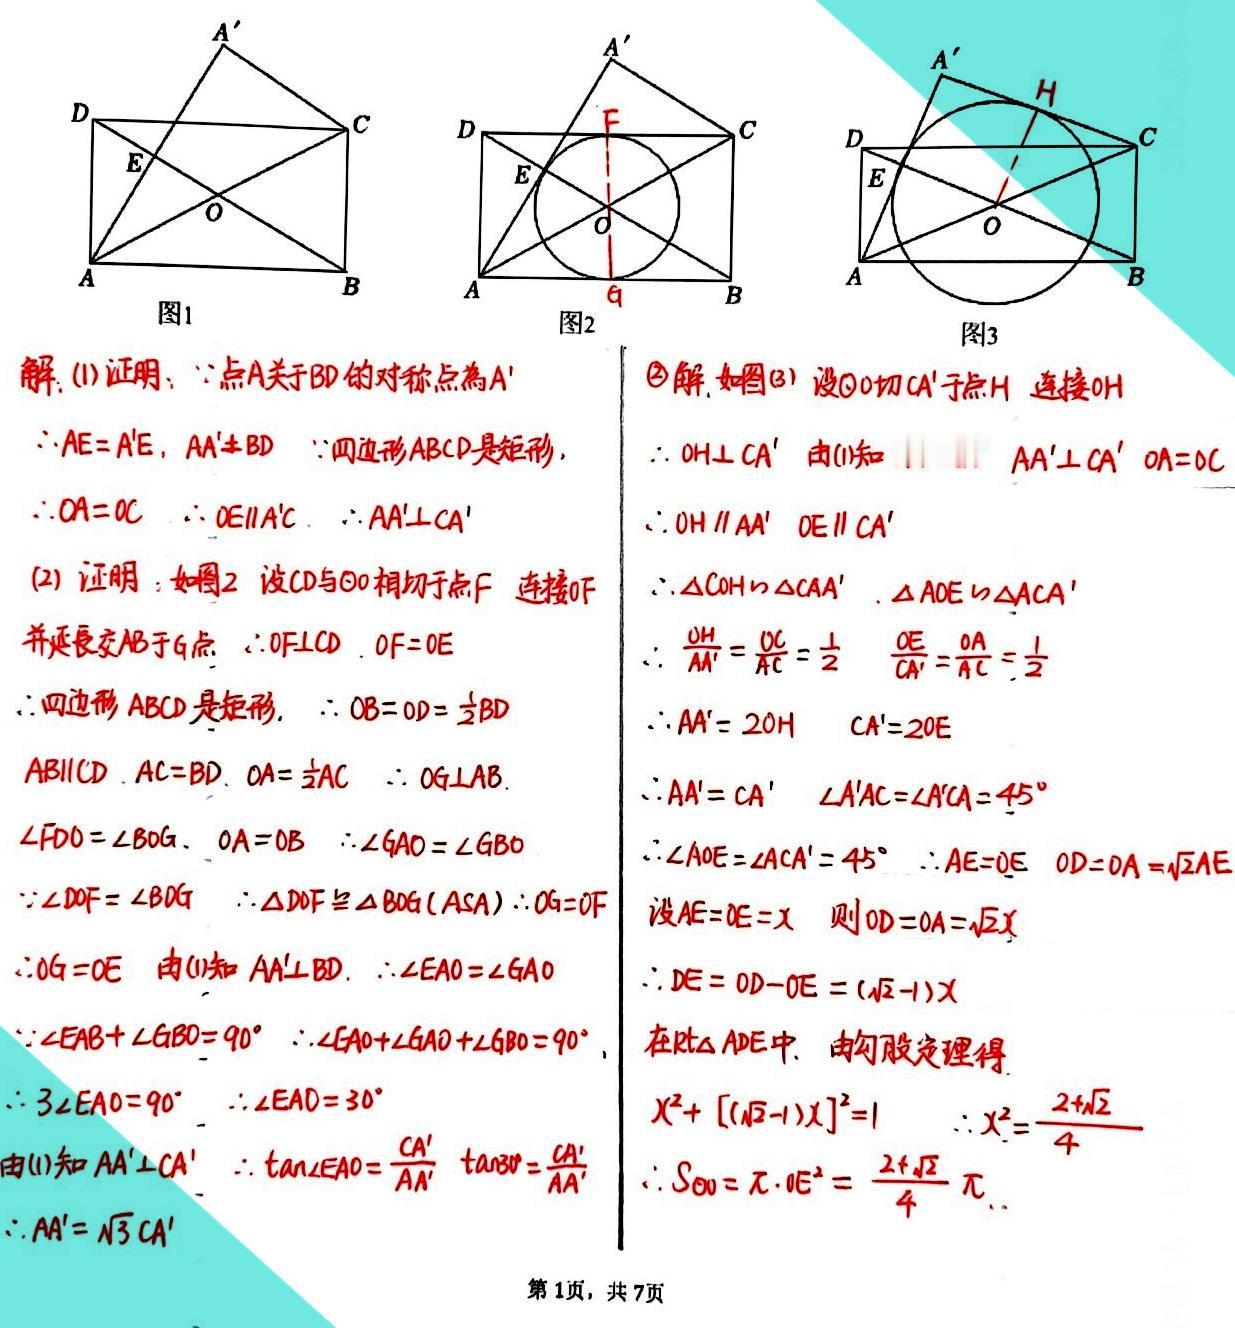 A′
D
C
E
O
A
B
图1
A′
D
F
C
E
O
A
G
B
图2
A′
H
D
C
E
O
A
B
图3
解.(1)证明：∵点A关于BD的对称点為A'
∴AE=A'E, AA'⊥BD ∵四边形ABCD是矩形,
∴OA=OC ∴OE∥A'C. ∴AA'⊥CA'
(2) 证明：如图2 设CD与⊙O相切于点F 连接OF
并延長交AB于G点 ∴OF⊥CD. OF=OE
∴四边形ABCD是矩形. ∴OB=OD=½BD
AB∥CD. AC=BD. OA=½AC ∴OG⊥AB.
∠FDO=∠BOG、OA=OB ∴∠GAO=∠GBO
∵∠DOF=∠BOG ∴△DOF≌△BOG(ASA)∴OG=OF
∴OG=OE 由(1)知 AA'⊥BD. ∴∠EAO=∠GAO
∵∠EAB+∠GBO=90° ∴∠EAO+∠GAO+∠GBO=90°.
∴3∠EAO=90° ∴∠EAO=30°
由(1)知 AA'⊥CA' ∴tan∠EAO=CA'/AA' tan30°=CA'/AA'
∴AA'=√3CA'
②解.如图(3) 设⊙O切CA'于点H 连接OH
∴OH⊥CA' 由(1)知 AA'⊥CA' OA=OC
∴OH∥AA' OE∥CA'
∴△COH∽△CAA'. △AOE∽△ACA'
∴OH/AA'=OC/AC=1/2 OE/CA'=OA/AC=1/2
∴AA'=2OH CA'=2OE
∴AA'=CA' ∠A'AC=∠A'CA=45°
∴∠AOE=∠ACA'=45° ∴AE=OE OD=OA=√2AE
设AE=OE=x 则OD=OA=√2x
∴DE=OD-OE=(√2-1)x
在Rt△ADE中. 由勾股定理得
x²+[(√2-1)x]²=1 ∴x²=(2+√2)/4
∴S⊙O=π·OE²=(2+√2)/4 π..
第 1页，共 7页